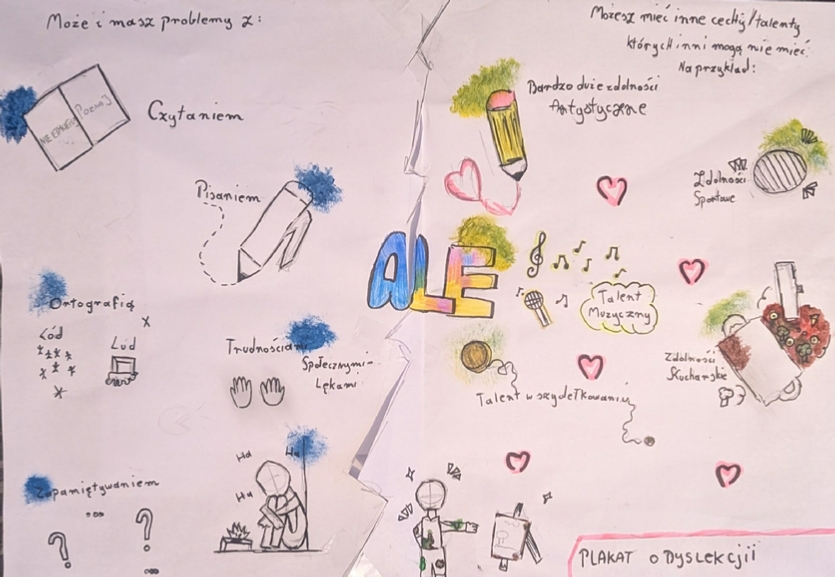 Może i masz problemy z:
NIE ZAPAMIĘTAJ
POZNAJ
Czytaniem
Pisaniem
Ortografią
Lód
Lud
x
Trudnościami
Społecznymi-
Lękami
Ha
Ha
Ha
Zapamiętywaniem
...
?
?
ALE
Możesz mieć inne cechy/talenty
których inni mogą nie mieć.
Na przykład:
Bardzo duże zdolności
Artystyczne
Zdolności
Sportowe
Talent
Muzyczny
Zdolności
Kucharskie
Talent w szydełkowaniu
PLAKAT O DYSLEKCJII